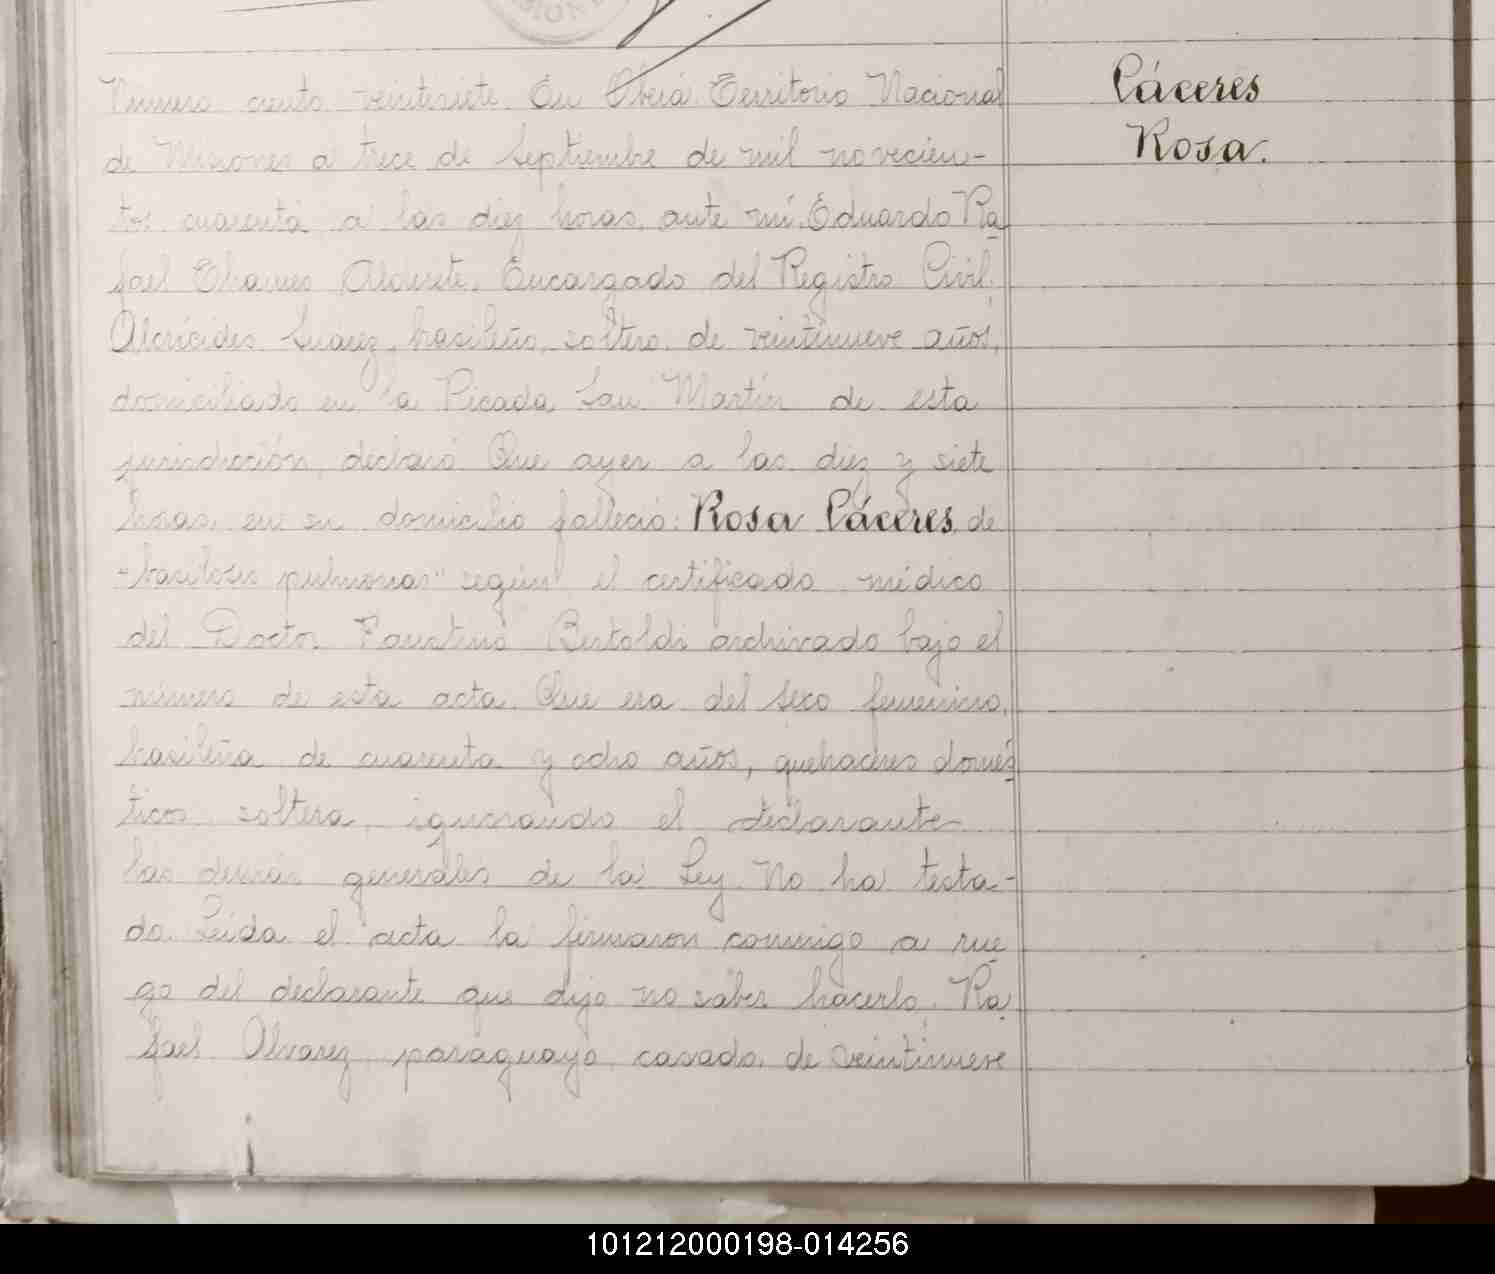 Número ciento veintisiete. En Oberá Territorio Nacional
Cáceres
de Misiones a trece de Septiembre de mil novecien-
Rosa.
tos cuarenta a las diez horas, ante mí, Eduardo Ra
fael Chaves Alderete, Encargado del Registro Civil,
Suárez, brasileño, soltero, de veintinueve años,
domiciliado en la Picada San Martín de esta
jurisdicción, declaró Que ayer a las diez y siete
horas, en su domicilio falleció: Rosa Cáceres, de
"basilosis pulmonar" según el certificado médico
del Doctor Faustino Bertoldi archivado bajo el
número de esta acta. Que era del sexo femenino,
brasileña de cuarenta y ocho años, quehaceres domés
ticos, soltera, ignorando el declarante
las demás generales de la Ley. No ha testa-
do. Leída el acta la firmaron conmigo a rue
go del declarante que dijo no saber hacerlo. Ra
fael Alvarez, paraguayo, casado, de veintinueve
101212000198-014256